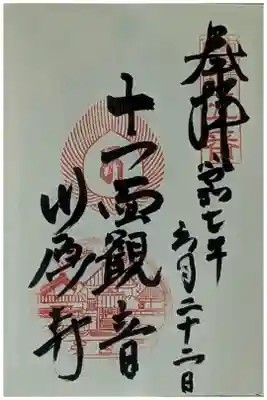 奉拝
令和七年
五月二十二日
十一面観音
川原寺